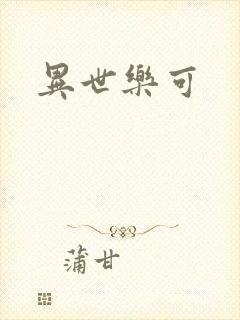 異世樂可
蒲甘